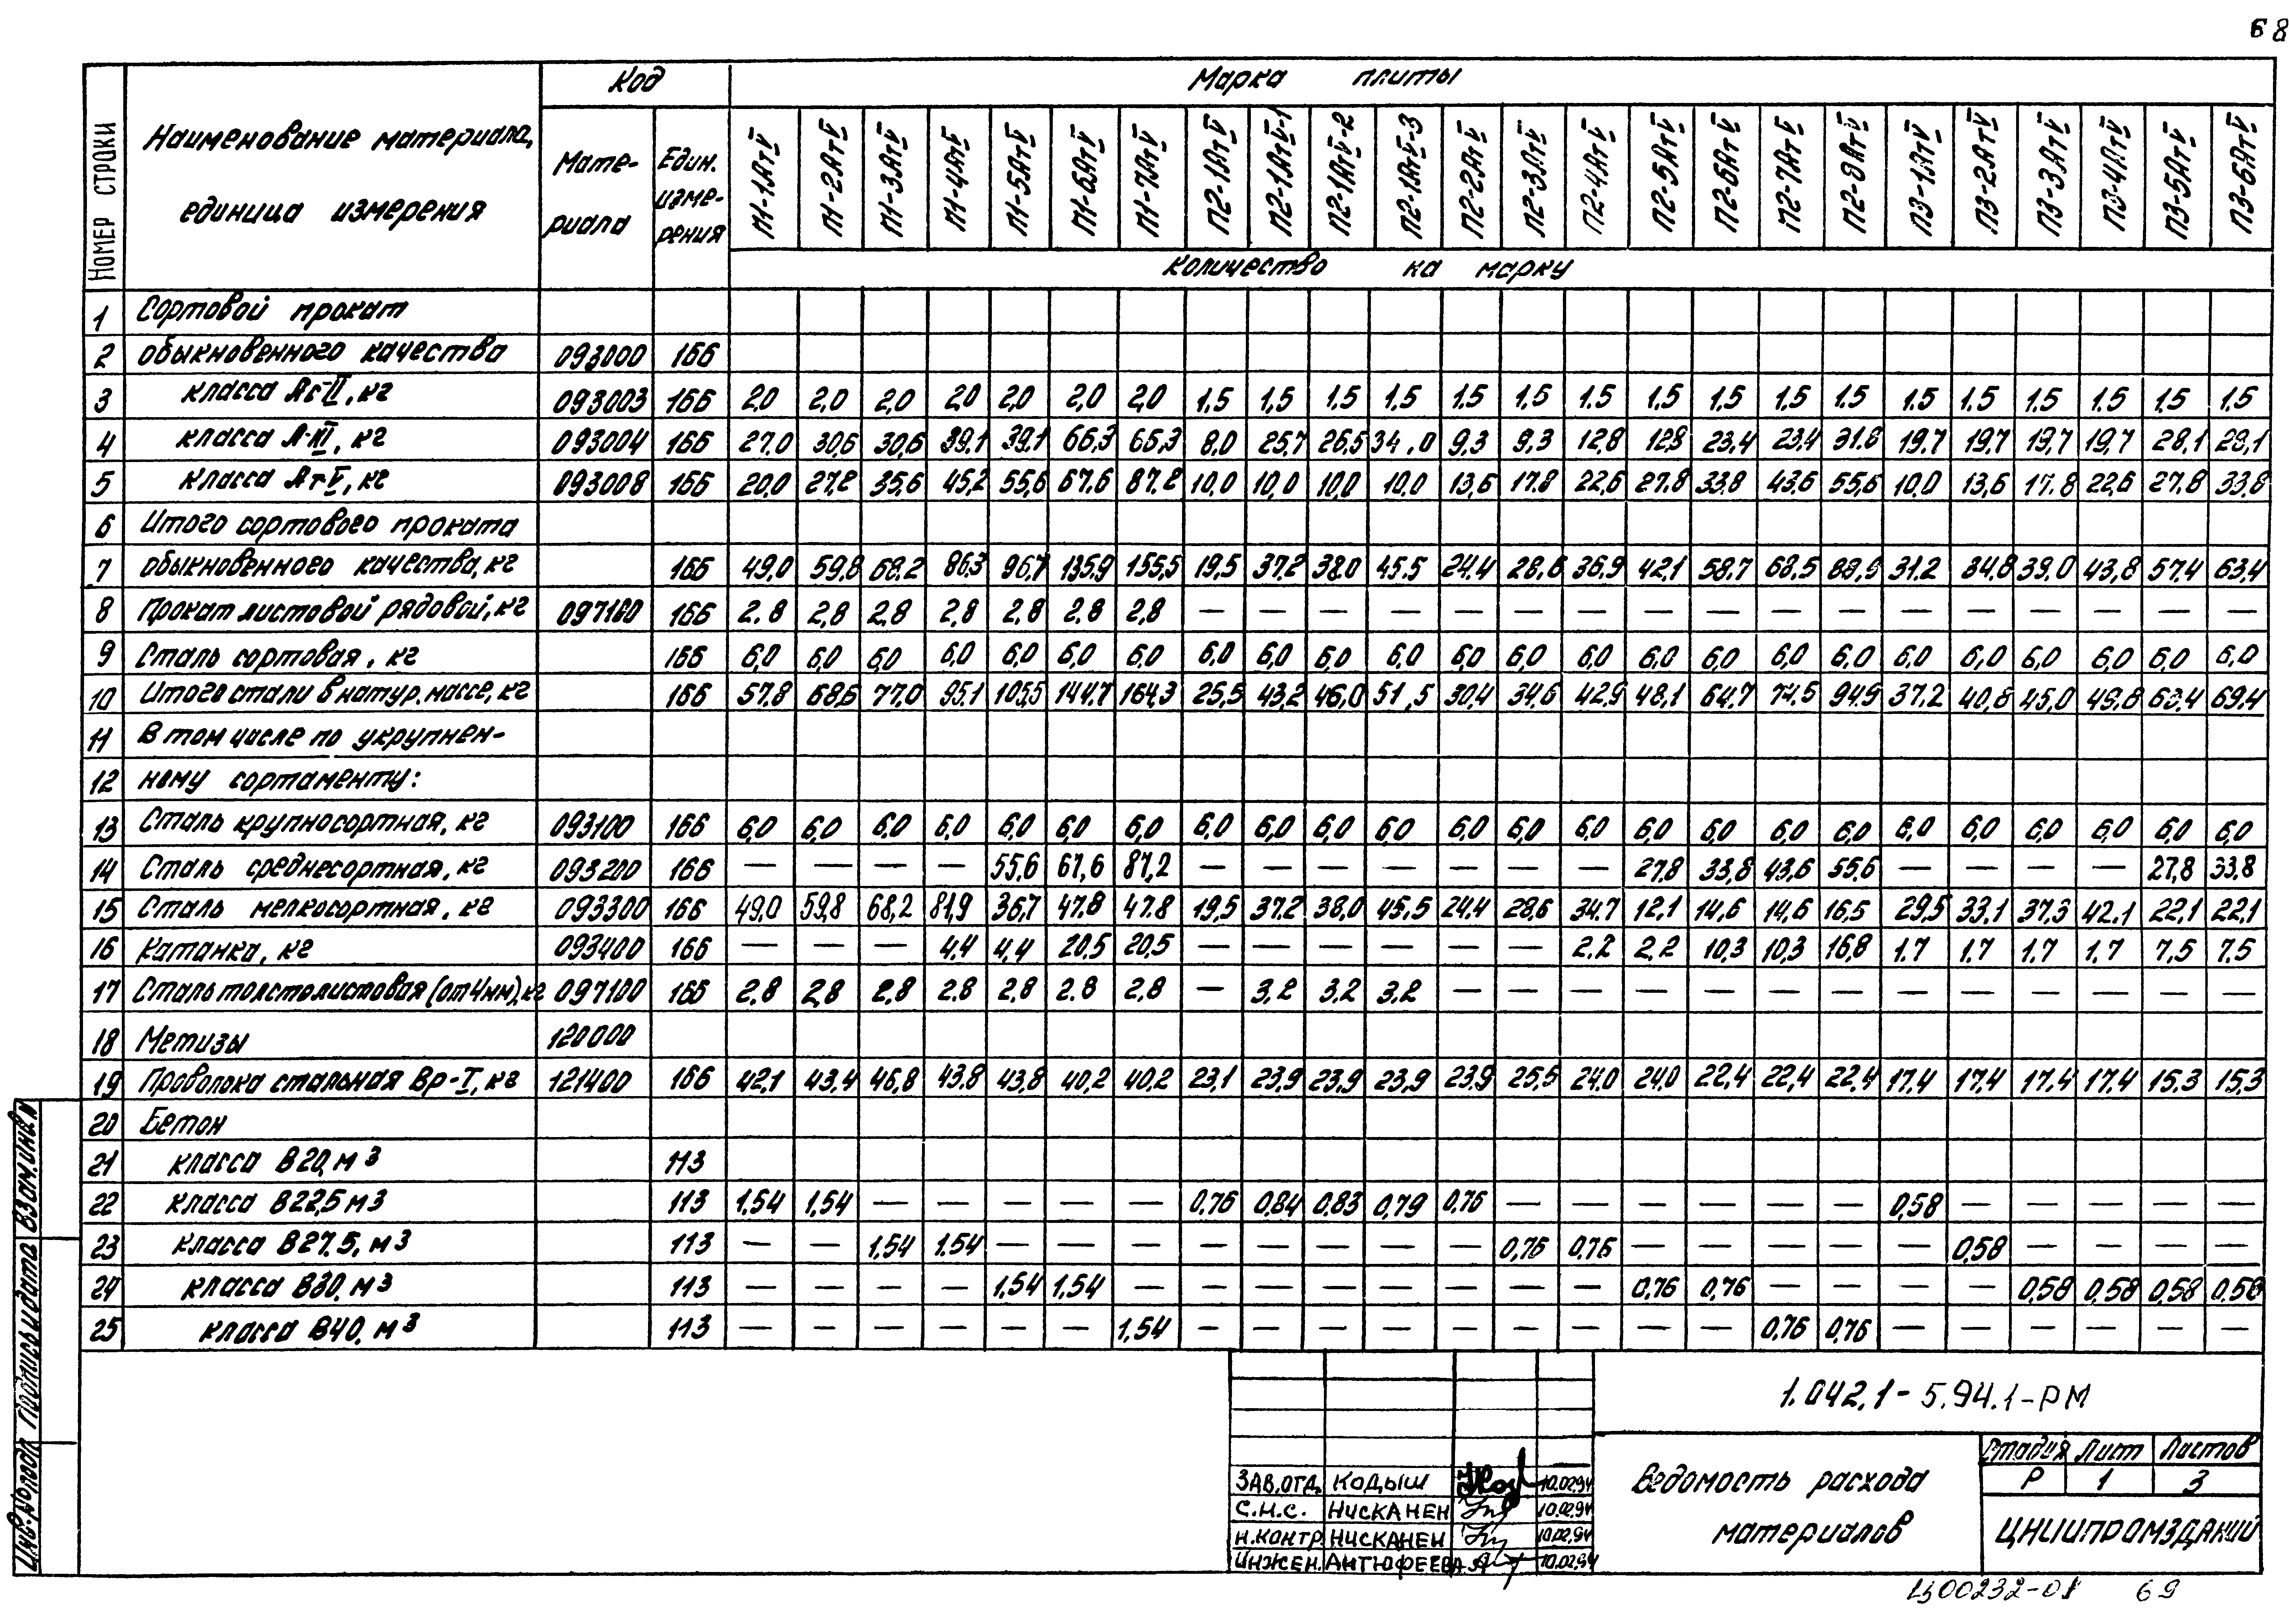 68
Номер строки | Наименование материала, единица измерения | Код | Марка плиты
Мате-риала | Един. изме-рения | П1-1АтV | П1-2АтV | П1-3АтV | П1-4АтV | П1-5АтV | П1-6АтV | П1-7АтV | П2-1АтV | П2-1АтV-1 | П2-1АтV-2 | П2-1АтV-3 | П2-2АтV | П2-3АтV | П2-4АтV | П2-5АтV | П2-6АтV | П2-7АтV | П2-8АтV | П3-1АтV | П3-2АтV | П3-3АтV | П3-4АтV | П3-5АтV | П3-6АтV
Количество на марку
1 Сортовой прокат
2 обыкновенного качества 093000 166
3 класса Ас-II, кг 093003 166 2,0 2,0 2,0 2,0 2,0 2,0 2,0 1,5 1,5 1,5 1,5 1,5 1,5 1,5 1,5 1,5 1,5 1,5 1,5 1,5 1,5 1,5 1,5 1,5
4 класса А-III, кг 093004 166 27,0 30,6 30,6 39,1 39,1 66,3 65,3 8,0 25,7 26,5 34,0 9,3 9,3 12,8 12,8 23,4 23,4 31,8 19,7 19,7 19,7 19,7 28,1 28,1
5 класса АтV, кг 093008 166 20,0 27,2 35,6 45,2 55,6 67,6 87,2 10,0 10,0 10,0 10,0 13,6 17,8 22,6 27,8 33,8 43,6 55,6 10,0 13,6 17,8 22,6 27,8 33,8
6 Итого сортового проката
7 обыкновенного качества, кг 166 49,0 59,8 68,2 86,3 96,7 135,9 155,5 19,5 37,2 38,0 45,5 24,4 28,6 36,9 42,1 58,7 68,5 88,9 31,2 34,8 39,0 43,8 57,4 63,4
8 Прокат листовой рядовой, кг 097100 166 2,8 2,8 2,8 2,8 2,8 2,8 2,8 — — — — — — — — — — — — — — — — —
9 Сталь сортовая, кг 166 6,0 6,0 6,0 6,0 6,0 6,0 6,0 6,0 6,0 6,0 6,0 6,0 6,0 6,0 6,0 6,0 6,0 6,0 6,0 6,0 6,0 6,0 6,0 6,0
10 Итого стали в натур. массе, кг 166 57,8 68,6 77,0 95,1 105,5 144,7 164,3 25,5 43,2 46,0 51,5 30,4 34,6 42,9 48,1 64,7 74,5 94,9 37,2 40,8 45,0 49,8 63,4 69,4
11 В том числе по укрупнен-
12 ному сортаменту:
13 Сталь крупносортная, кг 093100 166 6,0 6,0 6,0 6,0 6,0 6,0 6,0 6,0 6,0 6,0 6,0 6,0 6,0 6,0 6,0 6,0 6,0 6,0 6,0 6,0 6,0 6,0 6,0 6,0
14 Сталь среднесортная, кг 093200 166 — — — — 55,6 67,6 87,2 — — — — — — — 27,8 33,8 43,6 55,6 — — — — 27,8 33,8
15 Сталь мелкосортная, кг 093300 166 49,0 59,8 68,2 81,9 36,7 47,8 47,8 19,5 37,2 38,0 45,5 24,4 28,6 34,7 12,1 14,6 14,6 16,5 29,5 33,1 37,3 42,1 22,1 22,1
16 Катанка, кг 093400 166 — — — 4,4 4,4 20,5 20,5 — — — — — — 2,2 2,2 10,3 10,3 16,8 1,7 1,7 1,7 1,7 7,5 7,5
17 Сталь толстолистовая (от 4мм), кг 097100 166 2,8 2,8 2,8 2,8 2,8 2,8 2,8 — 3,2 3,2 3,2 — — — — — — — — — — — — —
18 Метизы 120000
19 Проволока стальная Вр-I, кг 121400 166 42,1 43,4 46,8 43,8 43,8 40,2 40,2 23,1 23,9 23,9 23,9 23,9 25,5 24,0 24,0 22,4 22,4 22,4 17,4 17,4 17,4 17,4 15,3 15,3
20 Бетон
21 класса В20, м3 113
22 класса В22,5 м3 113 1,54 1,54 — — — — — 0,76 0,84 0,83 0,79 0,76 — — — — — — 0,58 — — — — —
23 класса В27,5, м3 113 — — 1,54 1,54 — — — — — — — — 0,76 0,76 — — — — — 0,58 — — — —
24 класса В30, м3 113 — — — — 1,54 1,54 — — — — — — — — 0,76 0,76 — — — — 0,58 0,58 0,58 0,58
25 класса В40, м3 113 — — — — — — 1,54 — — — — — — — — — 0,76 0,76 — — — — — —
Инв.№ подл. Подпись и дата Взам.инв.№
1.042.1-5.94.1-РМ
Зав.отд. Кодыш 10.02.94
С.н.с. Нисканен 10.02.94
Н.контр. Нисканен 10.02.94
Инжен. Антюфеева 10.02.94
Ведомость расхода материалов
Стадия Лист Листов
Р 1 3
ЦНИИПРОМЗДАНИЙ
69